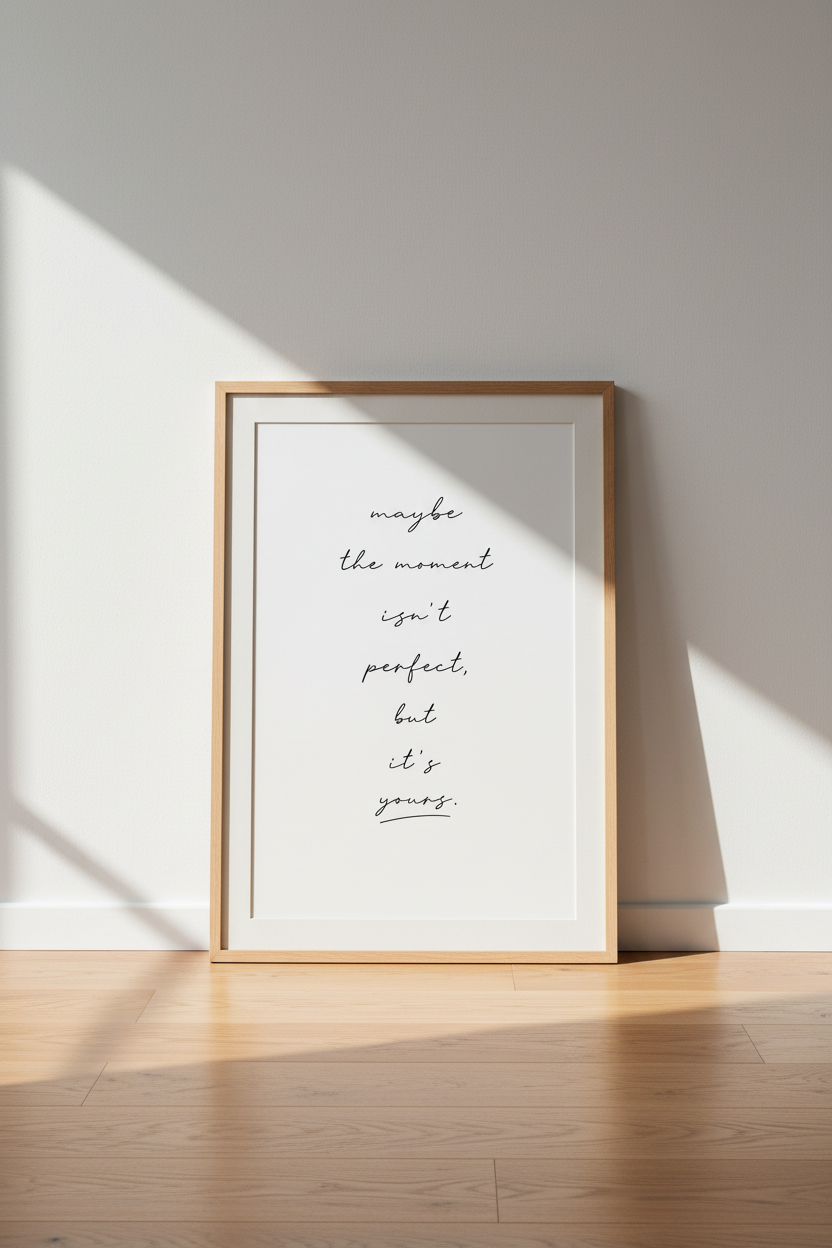 maybe
the moment
isn't
perfect,
but
it's
yours.